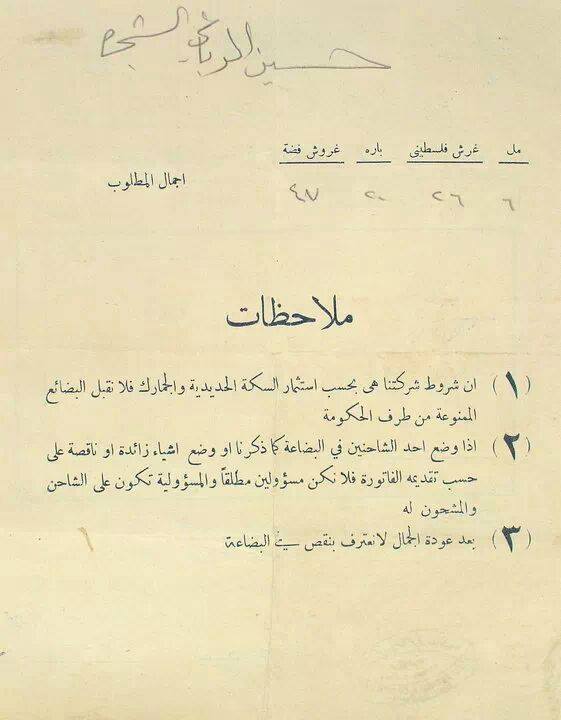 حسين المرباني الشجره
مل غرش فلسطيني باره غروش فضة
اجمال المطلوب
٦ ٢٦ ٢٠ ٤٧
ملاحظات
(١) ان شروط شركتنا هي بحسب استثمار السكة الحديدية والجمارك فلا نقبل البضائع
الممنوعة من طرف الحكومة
(٢) اذا وضع احد الشاحنين في البضاعة كما ذكرنا او وضع اشياء زائدة او ناقصة على
حسب تقديمه الفاتورة فلا نكن مسؤولين مطلقاً والمسؤولية تكون على الشاحن
والمشحون له
(٣) بعد عودة الجمال لا نعترف بنقص في البضاعة